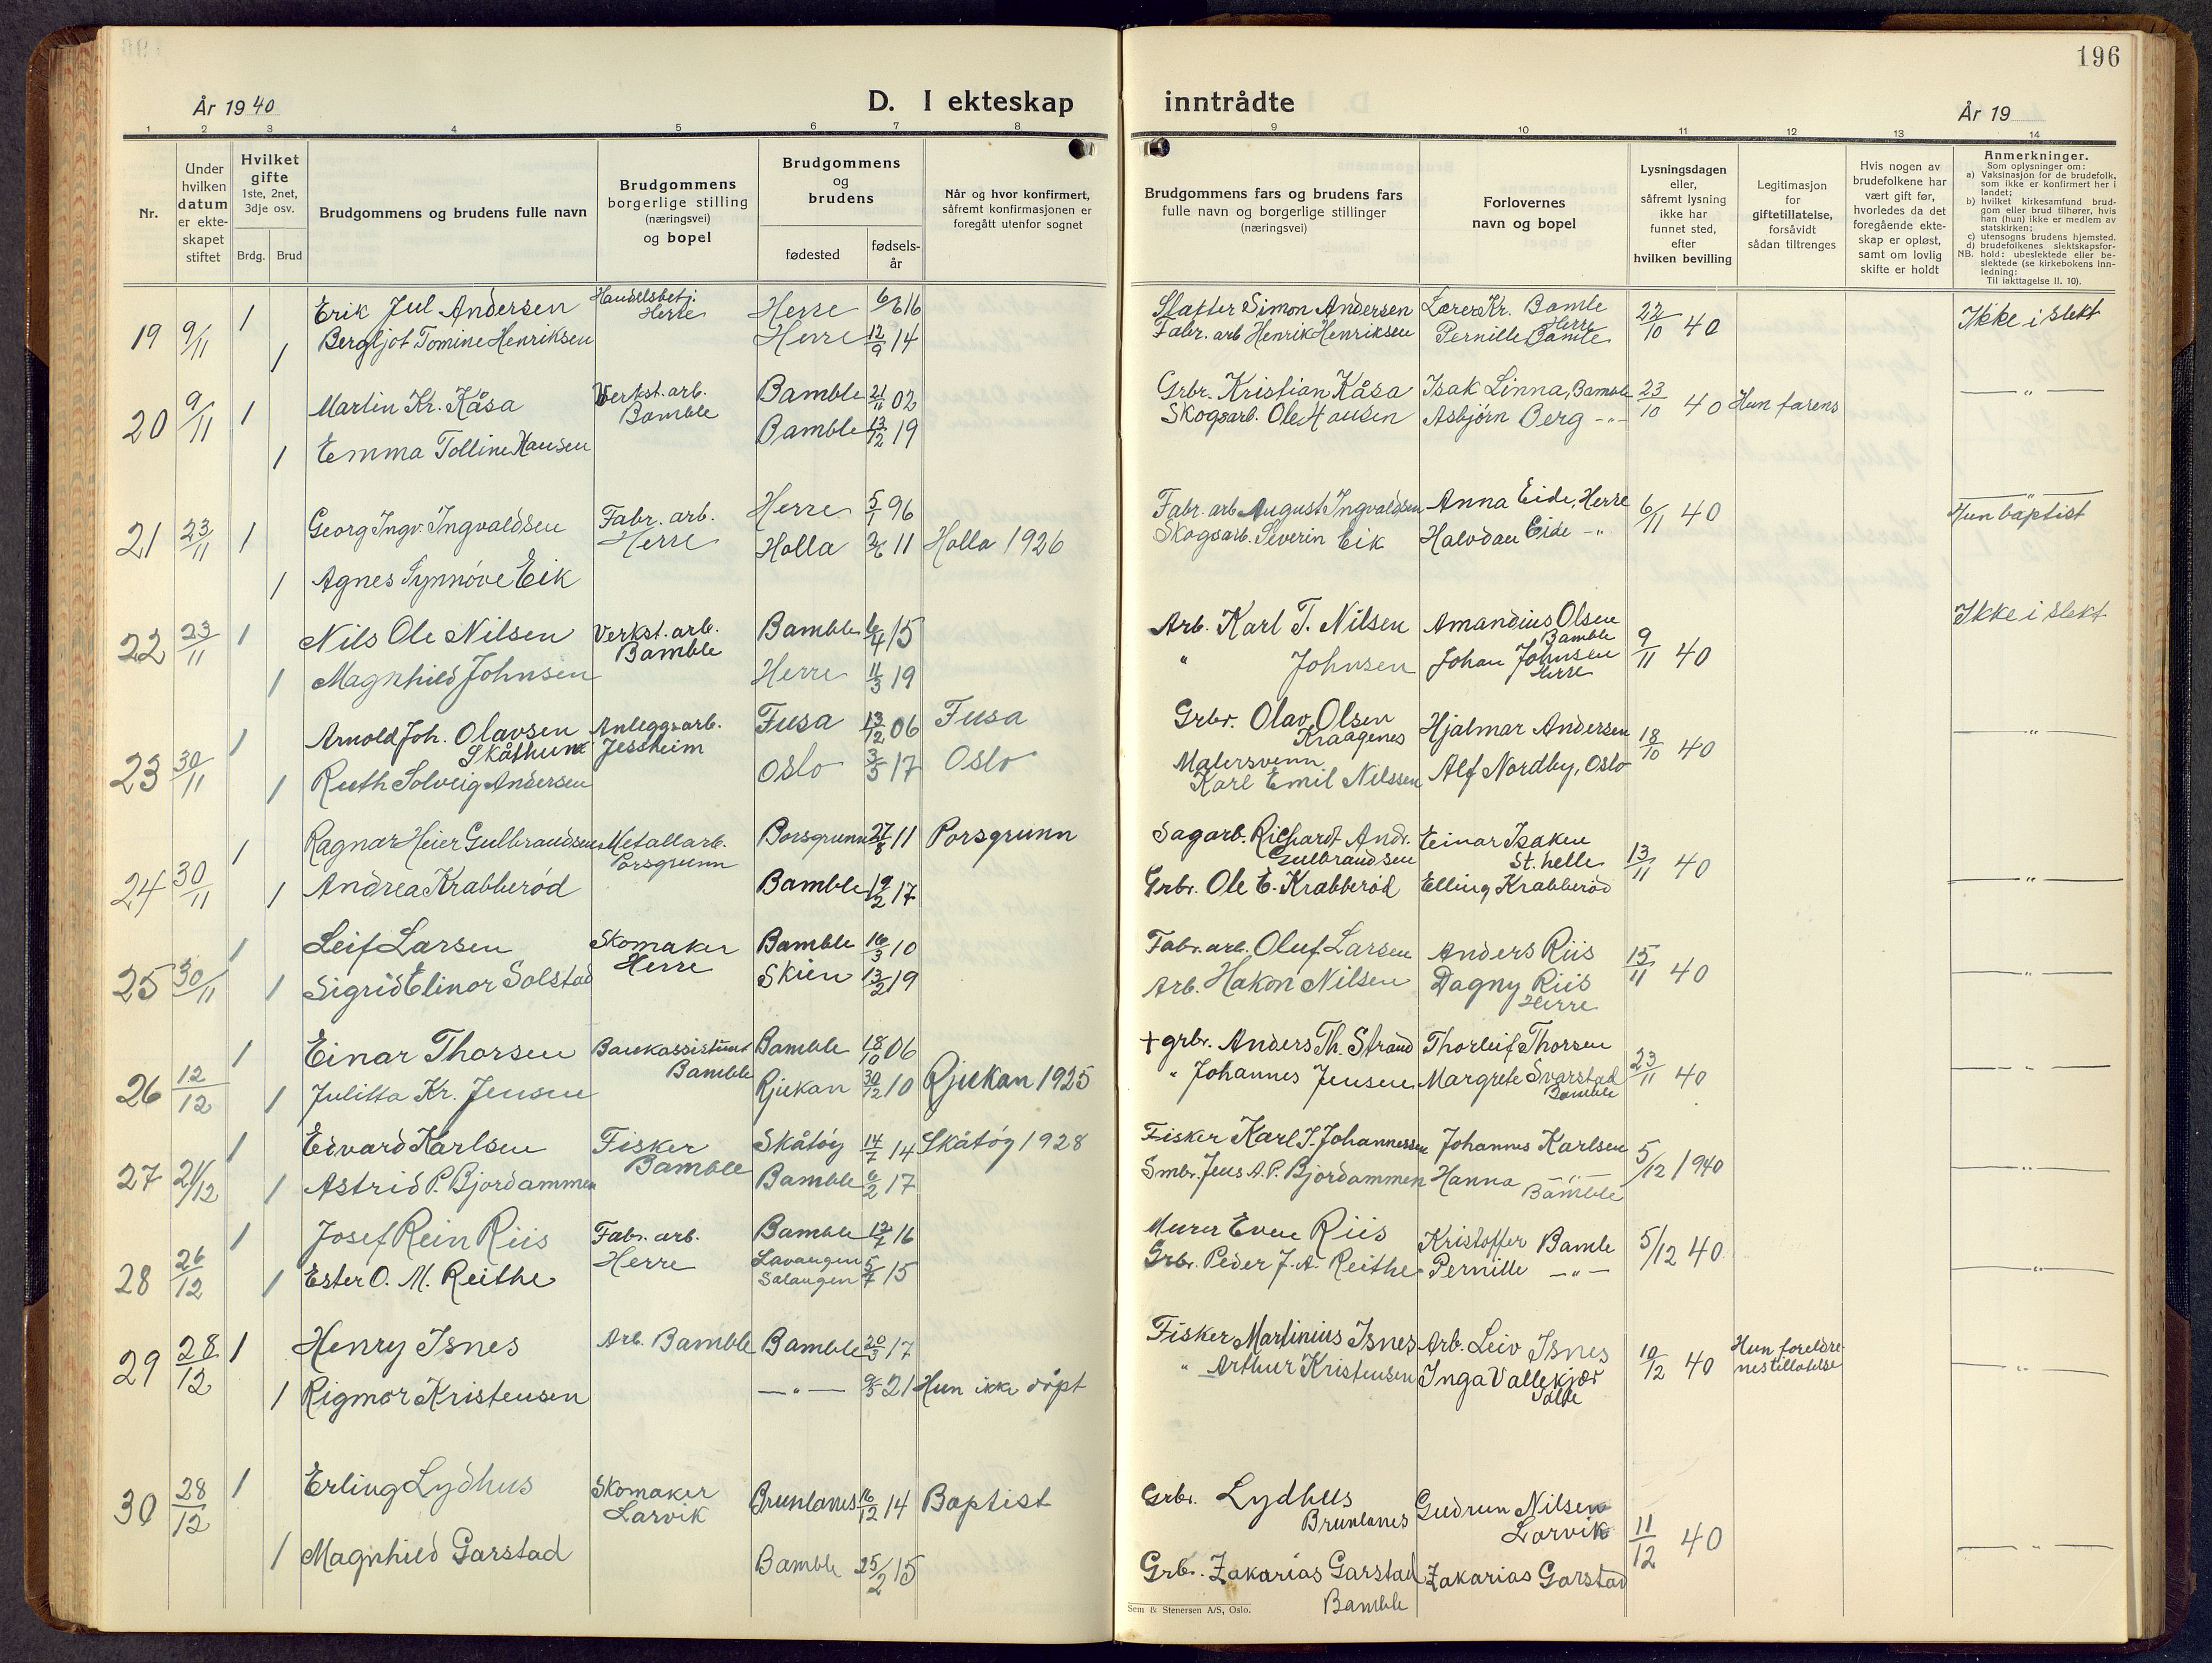 196
År 1940
D. I ekteskap inntrådte
År 19
1 2 3 4 5 6 7 8 9 10 11 12 13 14
Nr.
Under hvilken datum er ekteskapet stiftet
Hvilket gifte 1ste, 2net, 3dje osv.
Brdg. Brud
Brudgommens og brudens fulle navn
Brudgommens borgerlige stilling (næringsvei) og bopel
Brudgommens og brudens
fødested
fødselsår
Når og hvor konfirmert, såfremt konfirmasjonen er foregått utenfor sognet
Brudgommens fars og brudens fars fulle navn og borgerlige stillinger (næringsvei)
Forlovernes navn og bopel
Lysningsdagen eller, såfremt lysning ikke har funnet sted, efter hvilken bevilling
Legitimasjon for giftetillatelse, forsåvidt sådan tiltrenges
Hvis nogen av brudefolkene har vært gift før, hvorledes da det foregående ekteskap er opløst, samt om lovlig skifte er holdt
Anmerkninger.
Som oplysninger om:
a) Vaksinasjon for de brudefolk, som ikke er konfirmert her i landet;
b) hvilket kirkesamfund brudgom eller brud tilhører, hvis han (hun) ikke er medlem av statskirken;
c) utensogns brudens hjemsted.
d) brudefolkenes slektskapsforhold: ubeslektede eller beslektede (se kirkebokens innledning:
NB. Til iakttagelse II. 10).
19 9/11 1 Erik Jul Andersen Handelsbetj. Herre Herre 16 Slakter Simon Andersen Lærer Kr. Bamle 22/10 40 Ikke i slekt
1 Bergljot Tomine Henriksen Herre 12/9 14 Fabr. arb Henrik Henriksen Pernille Bamle Herre
20 9/11 1 Martin Kr. Kåsa Verkst. arb. Bamble Bamble 21/11 02 Grbr. Kristian Kåsa Isak Linna, Bamble 23/10 40 Hun farens — " —
1 Emma Tolline Hansen Bamble 13/12 19 Skogsarb. Ole Hansen Asbjörn Berg - " -
21 23/11 1 Georg Ingv. Ingvaldsen Fabr. arb. Herre Herre 5/1 96 Fabr. arb August Ingvaldsen Anna Eide, Herre 6/11 40 — " — Hun baptist
1 Agnes Synnöve Eik Holla 11 Holla 1926 Skogsarb. Severin Eik Halvdan Eide - "
22 23/11 1 Nils Ole Nilsen Verkst. arb. Bamble Bamble 6/4 15 Arb. Karl T. Nilsen Amandius Olsen Bamble 9/11 40 Ikke i slekt
1 Magnhild Johnsen Herre 11/3 19 " Johnsen Johan Johnsen Herre
23 30/11 1 Arnold Joh. Olavsen Skåthun Anleggsarb. Jessheim Fusa 13/12 06 Fusa Grbr. Olav Olsen Kraagenes Hjalmar Andersen 18/10 40 — " —
1 Ruth Solveig Andersen Oslo 3/3 17 Oslo Malersvenn Karl Emil Nilssen Alf Nordby, Oslo
24 30/11 1 Ragnar Heier Gulbrandsen Metallarb. Porsgrunn Porsgrunn 27/8 11 Porsgrunn Sagarb. Richardt Andr. Gulbrandsen Einar Isaken St.helle 13/11 40 — " —
1 Andrea Krabberød Bamble 19/2 17 Grbr. Ole E. Krabberød Elling Krabberød
25 30/11 1 Leif Larsen Skomaker Herre Bamble 16/3 10 Fabr. arb. Oluf Larsen Anders Riis 15/11 40 — " —
1 Sigrid Elinor Solstad Skien 13/2 19 Arb. Hakon Nilsen Dagny Riis Herre
26 12/12 1 Einar Thorsen Bankassistent Bamble Bamble 18/10 06 + grbr. Anders Th. Strand Thorleif Thorsen 23/11 40 — " —
1 Julitta Kr. Jensen Rjukan 30/12 10 Rjukan 1925 " Johannes Jensen Margrete Svarstad Bamble
27 21/12 1 Edvard Karlsen Fisker Bamble Skåtöy 14/7 14 Skåtöy 1928 Fisker Karl J. Johannessen Johannes Karlsen 5/12 1940 — " —
1 Astrid P. Bjordammen Bamble 6/2 17 Smbr. Jens A.P. Bjordammen Hanna — " — Bamble
28 26/12 1 Josef Rein Riis Fabr. arb. Herre Bamble 12/7 16 Murer Even Riis Kristoffer Bamle 5/12 40 — " —
1 Ester O. M. Reithe Lavangen Salangen 5/7 15 Grbr. Peder J. A. Reithe Pernille — " —
29 28/12 1 Henry Isnes Arb. Bamble Bamble 20/3 17 Fisker Martinius Isnes Arb. Leiv Isnes 10/12 40 Hun foreldrenes tillatelse — " —
1 Rigmor Kristensen — " — 9/5 21 Hun ikke döpt " Arthur Kristensen Inga Vallekjær
30 28/12 1 Erling Lydhus Skomaker Larvik Brunlanes 16/12 14 Baptist Grbr. Lydhus Brunlanes Gudrun Nilsen Larvik 11/12 40 — " —
1 Magnhild Garstad Bamble 25/2 15 Grbr. Zakarias Garstad Bamble Zakarias Garstad
Sem & Stenersen A/S, Oslo.